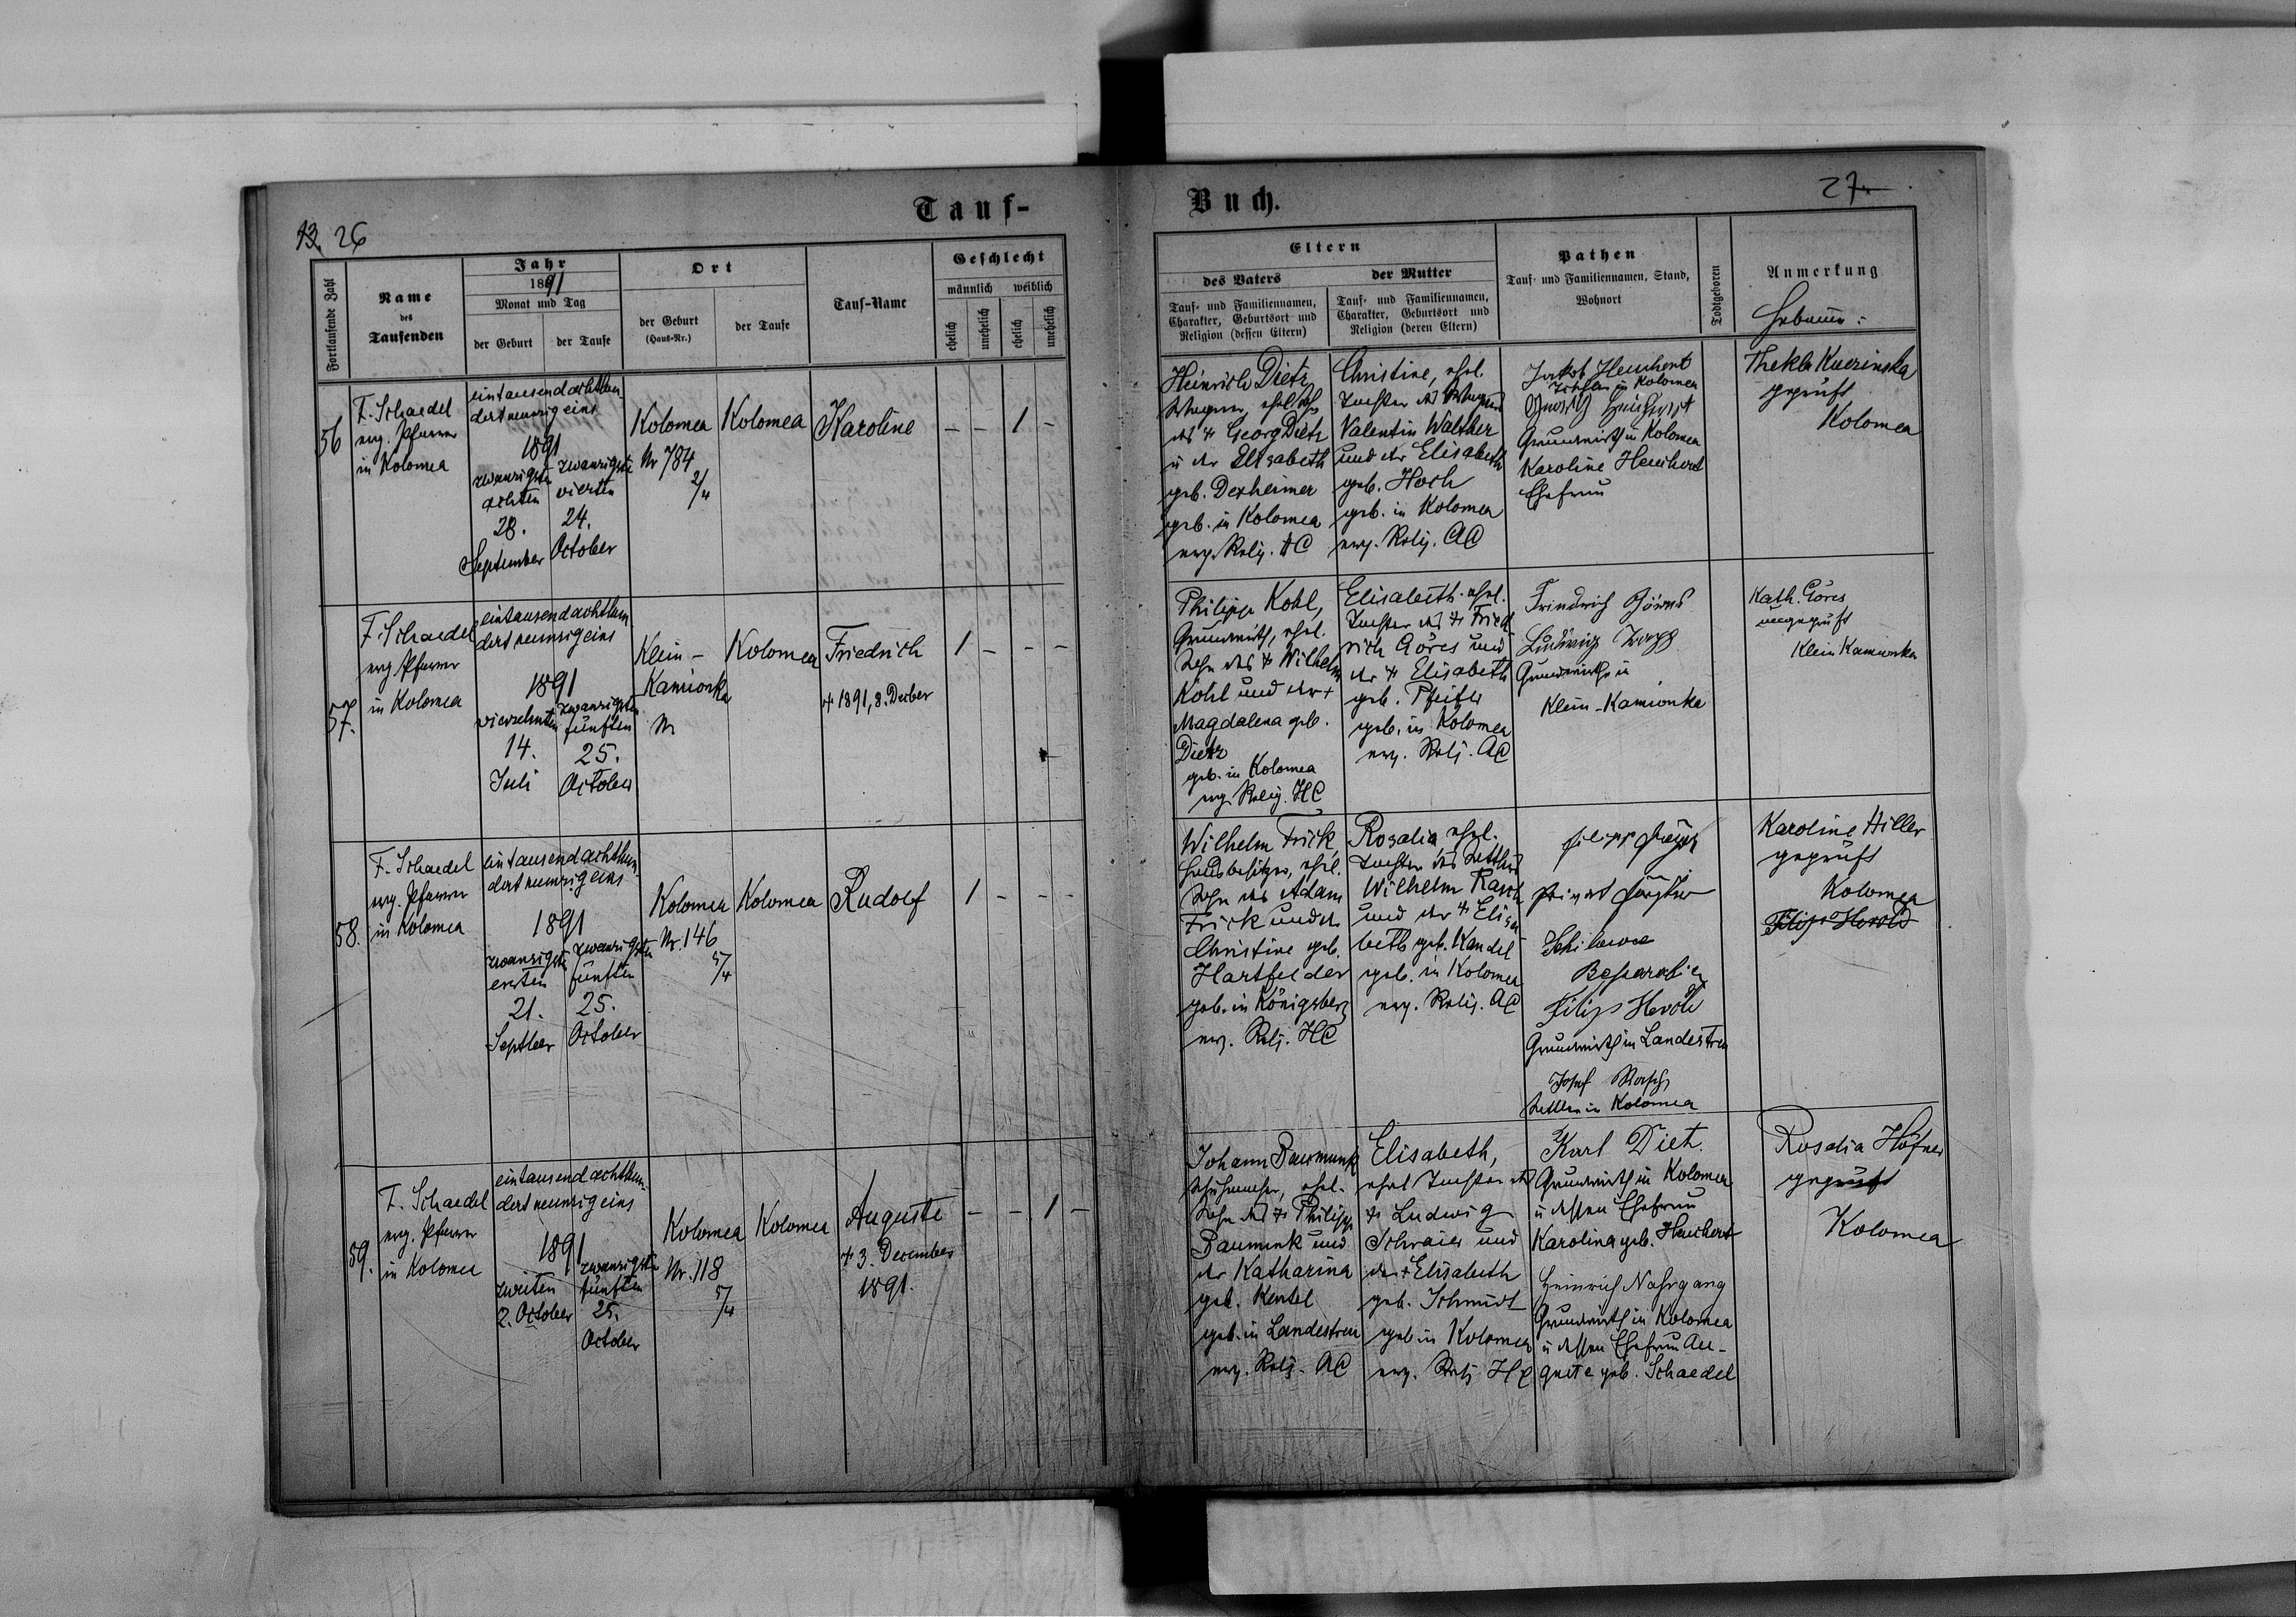 Tauf-
Buch.
13. 26
27
Fortlaufende Zahl
Name
des
Taufenden
Jahr
1891
Monat und Tag
der Geburt
der Taufe
Ort
der Geburt
(Haus-Nr.)
der Taufe
Tauf-Name
Geschlecht
männlich
weiblich
ehelich
unehelich
ehelich
unehelich
Eltern
des Vaters
Tauf- und Familiennamen,
Charakter, Geburtsort und
Religion (dessen Eltern)
der Mutter
Tauf- und Familiennamen,
Charakter, Geburtsort und
Religion (deren Eltern)
Pathen
Tauf- und Familiennamen, Stand,
Wohnort
Todtgeboren
Anmerkung
56
F. Schaedel
evg. Pfarrer
in Kolomea
eintausendachthun
dertneunzigeins
1891
zwanzigsten
achten
28.
September
zwanzigsten
vierten
24.
October
Kolomea
Nr 784
2/4
Kolomea
Karoline
– – 1 –
Heinrich Dietz
Wagner, ehel. Sohn
des + Georg Dietz
u der Elisabeth
geb. Dexheimer
geb. in Kolomea
evg. Relig. AC
Christine, ehel.
Tochter des Wagners
Valentin Walther
und der Elisabeth
geb. Hoch
geb. in Kolomea
evg. Relig. AC
Jakob Heuchert
in Kolomea
Grundwirth in Kolomea
Karoline Heuchert
Ehefrau
Thekla Kuczinska
geprüft
Kolomea
57.
F. Schaedel
evg Pfarrer
in Kolomea
eintausendachthun
dertneunzigeins
1891
vierzehnten
14.
Juli
zwanzigsten
fünften
25.
October
Klein-
Kamionka
Nr
Kolomea
Friedrich
+ 1891, 8. Decber
1 – – –
Philipp Kohl,
Grundwirth, ehel.
Sohn des + Wilhelm
Kohl und der +
Magdalena geb.
Dietz
geb. in Kolomea
evg. Relig. HC
Elisabeth ehel.
Tochter des + Fried
rich Göres und
der + Elisabeth
geb. Pfeifer
geb. in Kolomea
evg. Relig. AC
Friedrich Göres
Ludwig Zapp
Grundwirthe in
Klein-Kamionka
Kath. Göres
ungeprüft
Klein Kamionka
58.
F. Schaedel
evg. Pfarrer
in Kolomea
eintausendachthun-
dertneunzigeins
1891
zwanzigsten
ersten
21.
Septber
zwanzigsten
fünften
25.
October
Kolomea
Nr. 146
5/4
Kolomea
Rudolf
1 – – –
Wilhelm Frick,
Hausbesitzer, ehel.
Sohn des Adam
Frick und der
Christine geb.
Hartfelder
geb. in Königsberg
evg. Relig. HC
Rosalia ehel.
Tochter des Sattlers
Wilhelm Rasch
und der + Elisa-
beth geb. Kandel
geb. in Kolomea
evg. Relig. AC
Bessarabien
Filip Herold
Grundwirth in Landestreu
Josef
Sattler in Kolomea
Karoline Hiller
geprüft
Kolomea
Filip Herold
59.
F. Schaedel
evg. Pfarrer
in Kolomea
eintausendachthun-
dertneunzigeins
1891
zweiten
2. October
zwanzigsten
fünften
25.
October
Kolomea
Nr. 118
5/4
Kolomea
Auguste
+ 3. December
1891.
– – 1 –
Johann Baumunk
Schuhmacher, ehel.
Sohn des + Philipp
Baumunk und
der Katharina
geb. Kentel
geb. in Landestreu
evg. Relig. AC
Elisabeth,
ehel Tochter des
+ Ludwig
Schraier und
der + Elisabeth
geb. Schmidt
geb in Kolomea
evg. Relig HC
Karl Dietz.
Grundwirth in Kolomea
u dessen Ehefrau
Karolina geb. Heuchert
Heinrich Nahrgang
Grundwirth in Kolomea
u dessen Ehefrau Au-
guste geb. Schaedel
Rosalia Höfner
geprüft
Kolomea